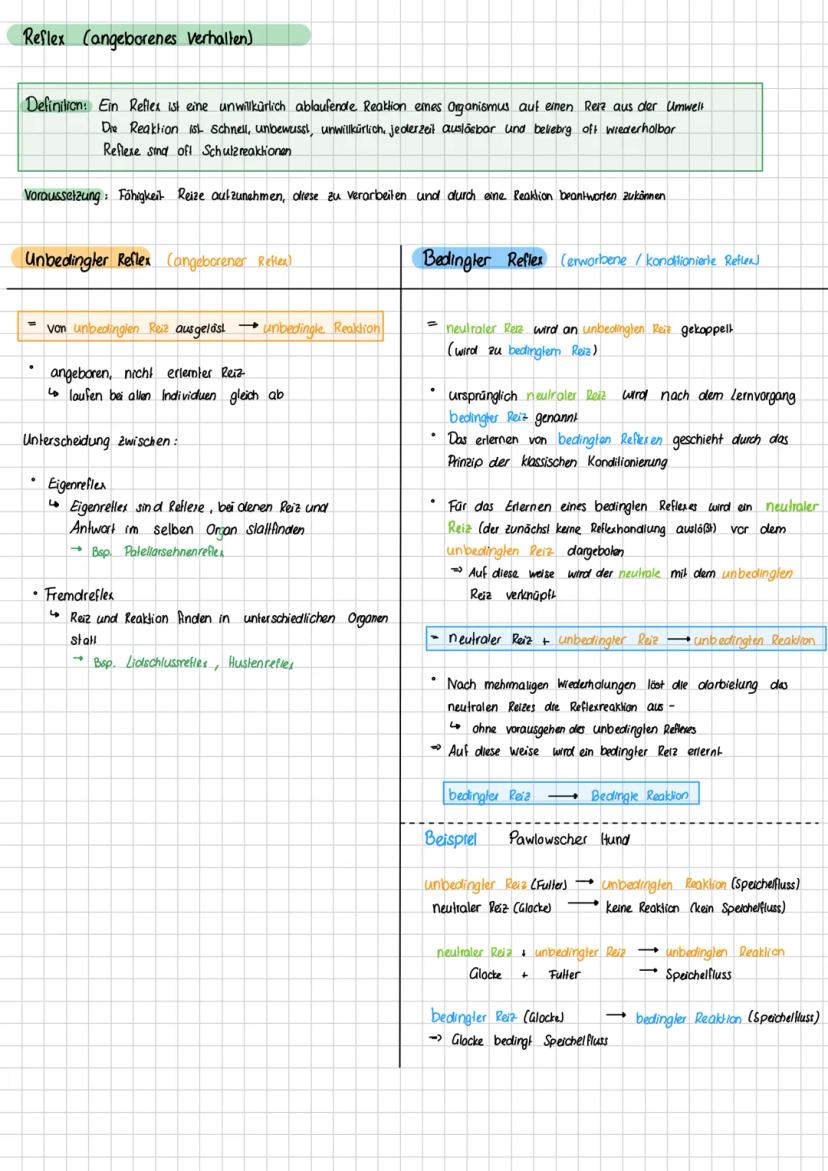 Reflex (angeborenes Verhalten)
Definition: Ein Reflex ist eine unwillkürlich ablaufende Reaktion eines Organismus auf einen Reiz aus der Umwelt
Die Reaktion ist schnell, unbewusst, unwillkürlich, jederzeit auslösbar und beliebig oft wiederholbar
Reflexe sind oft Schutzreaktionen
Voraussetzung: Fähigkeit Reize aufzunehmen, diese zu verarbeiten und durch eine Reaktion beantworten zukönnen
Unbedingter Reflex (angeborener Reflex)
= von unbedingten Reiz ausgelöst → unbedingte Reaktion
• angeboren, nicht erlernter Reiz
↳ laufen bei allen Individuen gleich ab
Unterscheidung zwischen:
• Eigenreflex
↳ Eigenreflex sind Reflexe, bei denen Reiz und
Antwort im selben Organ stattfinden
→ Bsp. Patellarsehnenreflex
• Fremdreflex
↳ Reiz und Reaktion finden in unterschiedlichen Organen
statt
→ Bsp. Lidschlussreflex, Hustenreflex
Bedingter Reflex (erworbene / konditionierte Reflex)
= neutraler Reiz wird an unbedingten Reiz gekoppelt
(wird zu bedingtem Reiz)
• ursprünglich neutraler Reiz wird nach dem Lernvorgang
bedingter Reiz genannt
• Das erlernen von bedingten Reflexen geschieht durch das
Prinzip der klassischen Konditionierung
• Für das Erlernen eines bedingten Reflexes wird ein neutraler
Reiz (der zunächst keine Reflexhandlung auslößt) vor dem
unbedingten Reiz dargeboten
⇒ Auf diese weise wird der neutrale mit dem unbedingten
Reiz verknüpft
- neutraler Reiz + unbedingter Reiz → unbedingten Reaktion
• Nach mehrmaligen Wiederholungen löst die darbietung des
neutralen Reizes die Reflexreaktion aus -
↳ ohne vorausgehen des unbedingten Reflexes
⇒ Auf diese Weise wird ein bedingter Reiz erlernt
bedingter Reiz → Bedingte Reaktion
Beispiel Pawlowscher Hund
unbedingter Reiz (Futter) → unbedingten Reaktion (Speichelfluss)
neutraler Reiz (Glocke) → Keine Reaktion (kein Speichelfluss)
neutraler Reiz + unbedingter Reiz → unbedingten Reaktion
Glocke + Futter → Speichelfluss
bedingter Reiz (Glocke) → bedingter Reaktion (Speichelfluss)
⇒ Glocke bedingt Speichelfluss